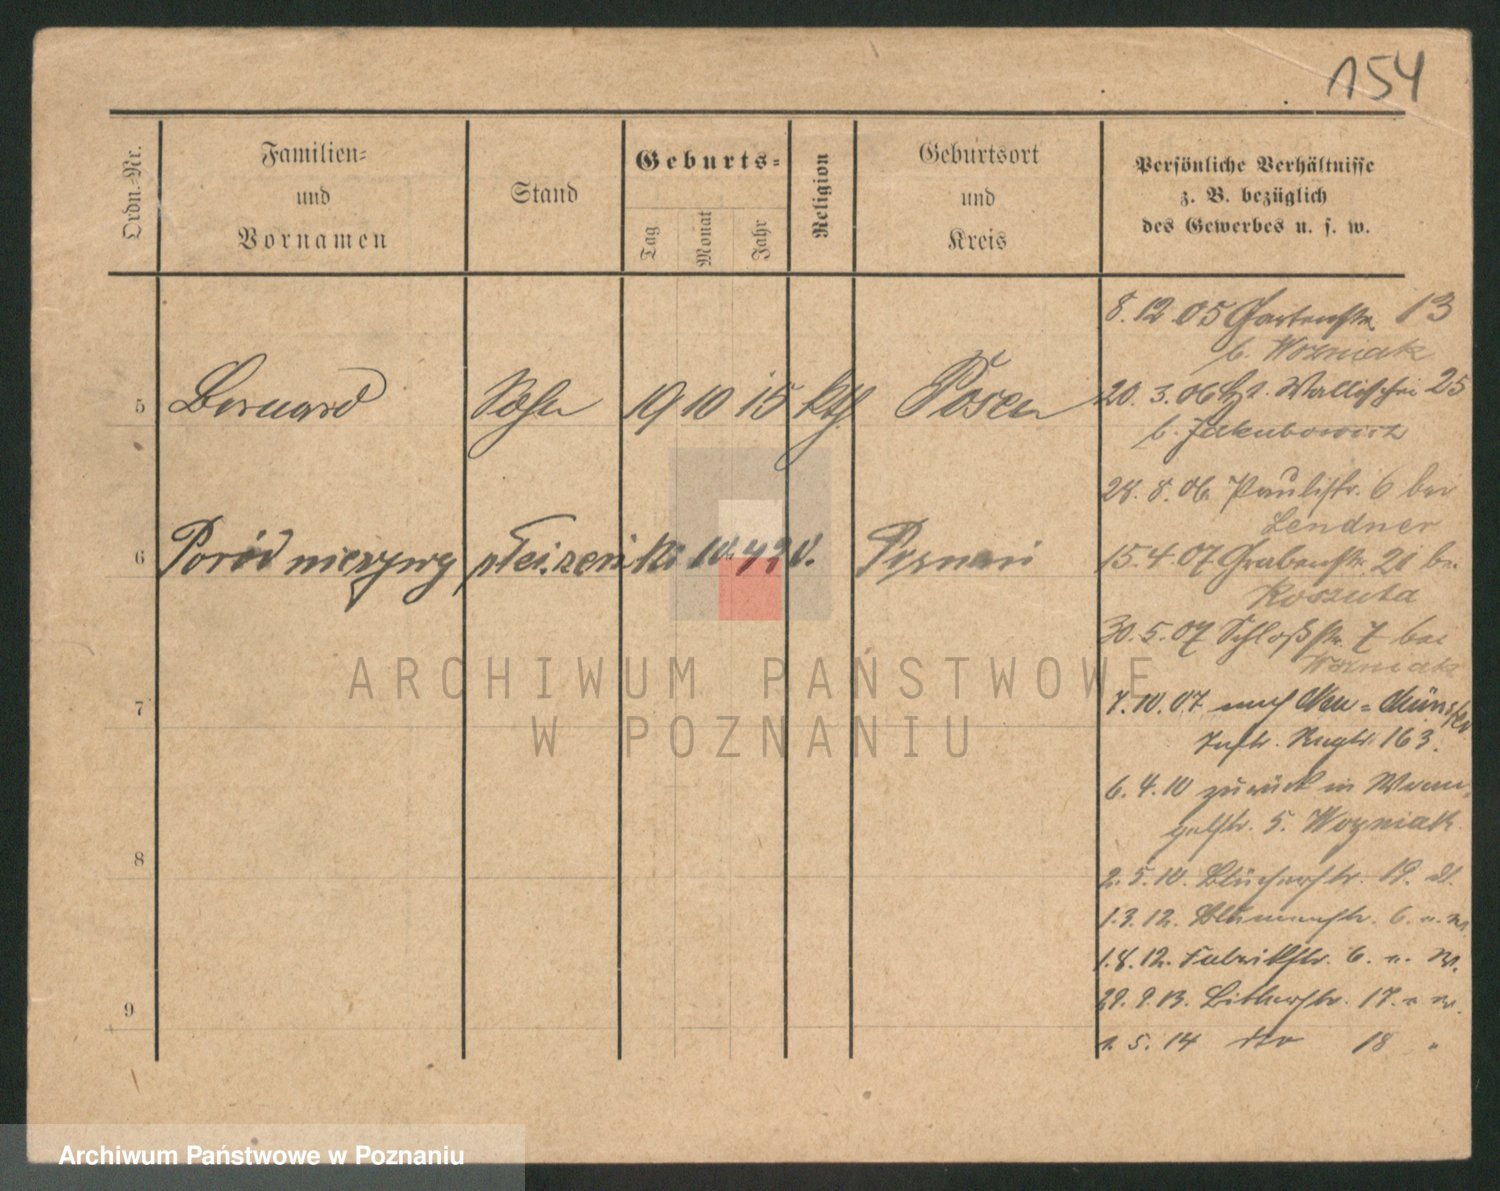 154
Ordn.-Nr.
Familien-
und
Vornamen
Stand
Geburts-
Tag
Monat
Jahr
Religion
Geburtsort
und
Kreis
Persönliche Verhältnisse
z. B. bezüglich
des Gewerbes u. s. w.
8.12.05 Gartenstr. 13
b. Wozniak
5 Bernard Sohn 19 10 15 kth. Posen
20.3.06 Wallischei 25
b. Jakubowicz
28.8.06. Paulistr. 6 bei
Lendner
6 Poród nieżywy płci żeń Poznań
15.4.07 Grabenstr. 21 bei
Koszuta
30.5.07 Schloßstr. 7 bei
Wozniak
7
7.10.07. nach Neu-Münster
163.
6.4.10 zurück in Wran-
gelstr. 5. Wozniak
8
2.5.10. Blücherstr. 19.
1.3.12. Blumenstr. 6.
1.8.12. Fabrikstr. 6.
9
29.9.13. Bitterstr. 17.
1.5.14 dto 18 "
ARCHIWUM PAŃSTWOWE
W POZNANIU
Archiwum Państwowe w Poznaniu